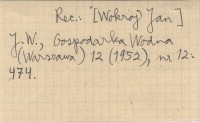 Rec.: [Wokroj Jan]
J. W., Gospodarka Wodna
(Warszawa) 12 (1952), nr 12:
474.